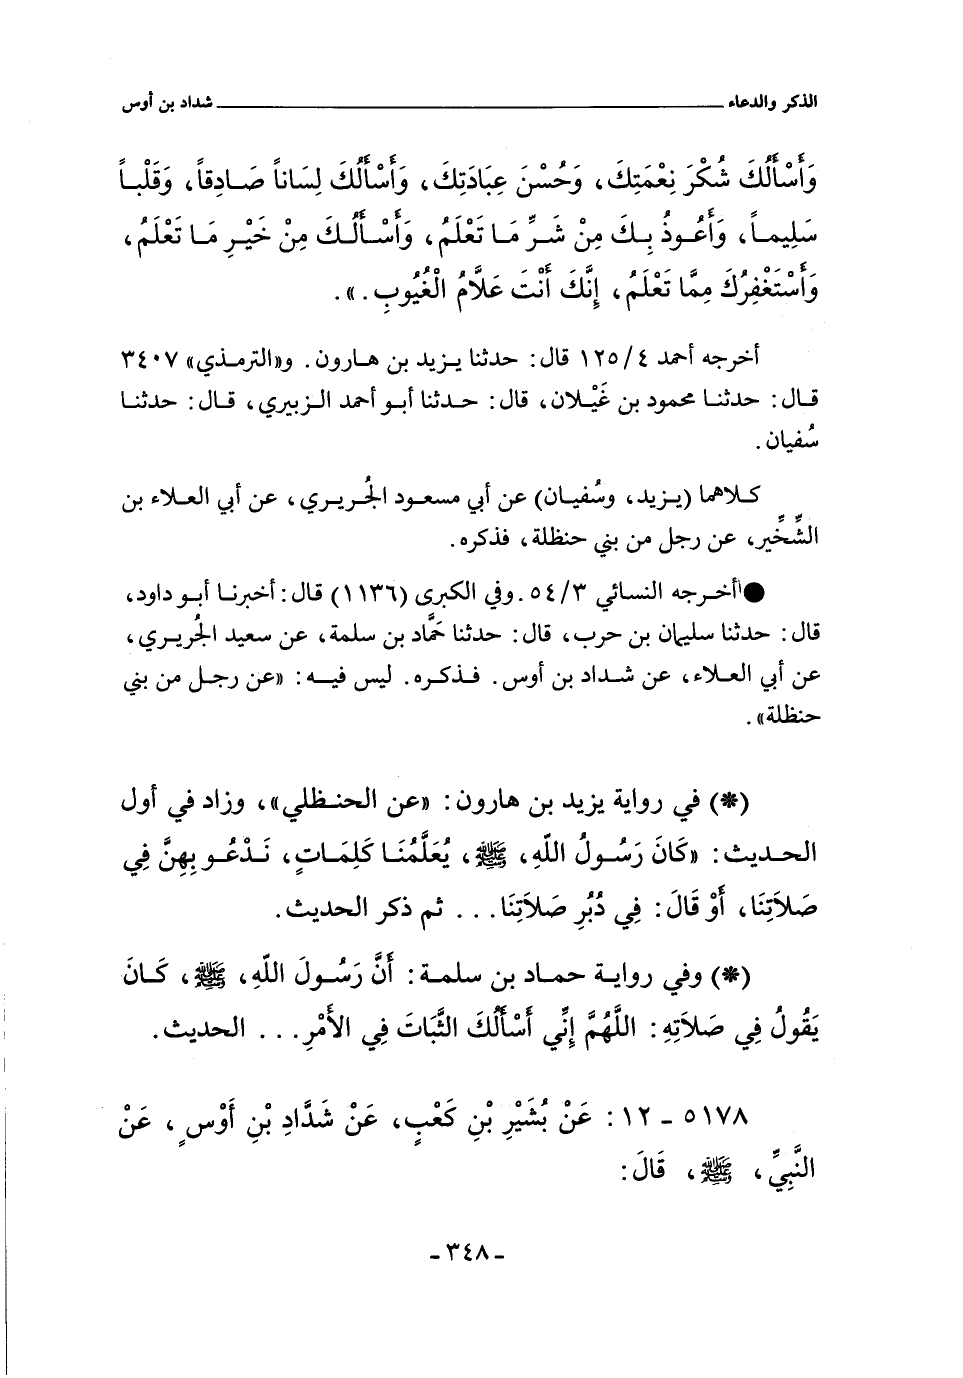 الذكر والدعاء ــــــــــــــــــ شداد بن أوس
وَأَسْأَلُكَ شُكْرَ نِعْمَتِكَ، وَحُسْنَ عِبَادَتِكَ، وَأَسْأَلُكَ لِسَاناً صَادِقاً، وَقَلْباً
سَلِيماً، وَأَعُوذُ بِكَ مِنْ شَرِّ مَا تَعْلَمُ، وَأَسْأَلُكَ مِنْ خَيْرِ مَا تَعْلَمُ،
وَأَسْتَغْفِرُكَ مِمَّا تَعْلَمُ، إِنَّكَ أَنْتَ عَلاَّمُ الْغُيُوبِ.».
أخرجه أحمد ٤/١٢٥ قال: حدثنا يزيد بن هارون. و«الترمذي» ٣٤٠٧
قال: حدثنا محمود بن غَيْلان، قال: حدثنا أبو أحمد الزبيري، قال: حدثنا
سُفيان.
كلاهما (يزيد، وسُفيان) عن أبي مسعود الجُريري، عن أبي العلاء بن
الشِّخِّير، عن رجل من بني حنظلة، فذكره.
● أخرجه النسائي ٣/٥٤. وفي الكبرى (١١٣٦) قال: أخبرنا أبو داود،
قال: حدثنا سليمان بن حرب، قال: حدثنا حمَّاد بن سلمة، عن سعيد الجُريري،
عن أبي العلاء، عن شداد بن أوس. فذكره. ليس فيه: «عن رجل من بني
حنظلة».
(*) في رواية يزيد بن هارون: «عن الحنظلي»، وزاد في أول
الحديث: «كَانَ رَسُولُ اللّهِ، ﷺ، يُعَلِّمُنَا كَلِمَاتٍ، نَدْعُو بِهِنَّ فِي
صَلاَتِنَا، أَوْ قَالَ: فِي دُبُرِ صَلاَتِنَا... ثم ذكر الحديث.
(*) وفي رواية حماد بن سلمة: أَنَّ رَسُولَ اللّهِ، ﷺ، كَانَ
يَقُولُ فِي صَلاَتِهِ: اللَّهُمَّ إِنِّي أَسْأَلُكَ الثَّبَاتَ فِي الأَمْرِ... الحديث.
٥١٧٨ - ١٢: عَنْ بُشَيْرِ بْنِ كَعْبٍ، عَنْ شَدَّادِ بْنِ أَوْسٍ، عَنْ
النَّبِيِّ، ﷺ، قَالَ:
- ٣٤٨ -